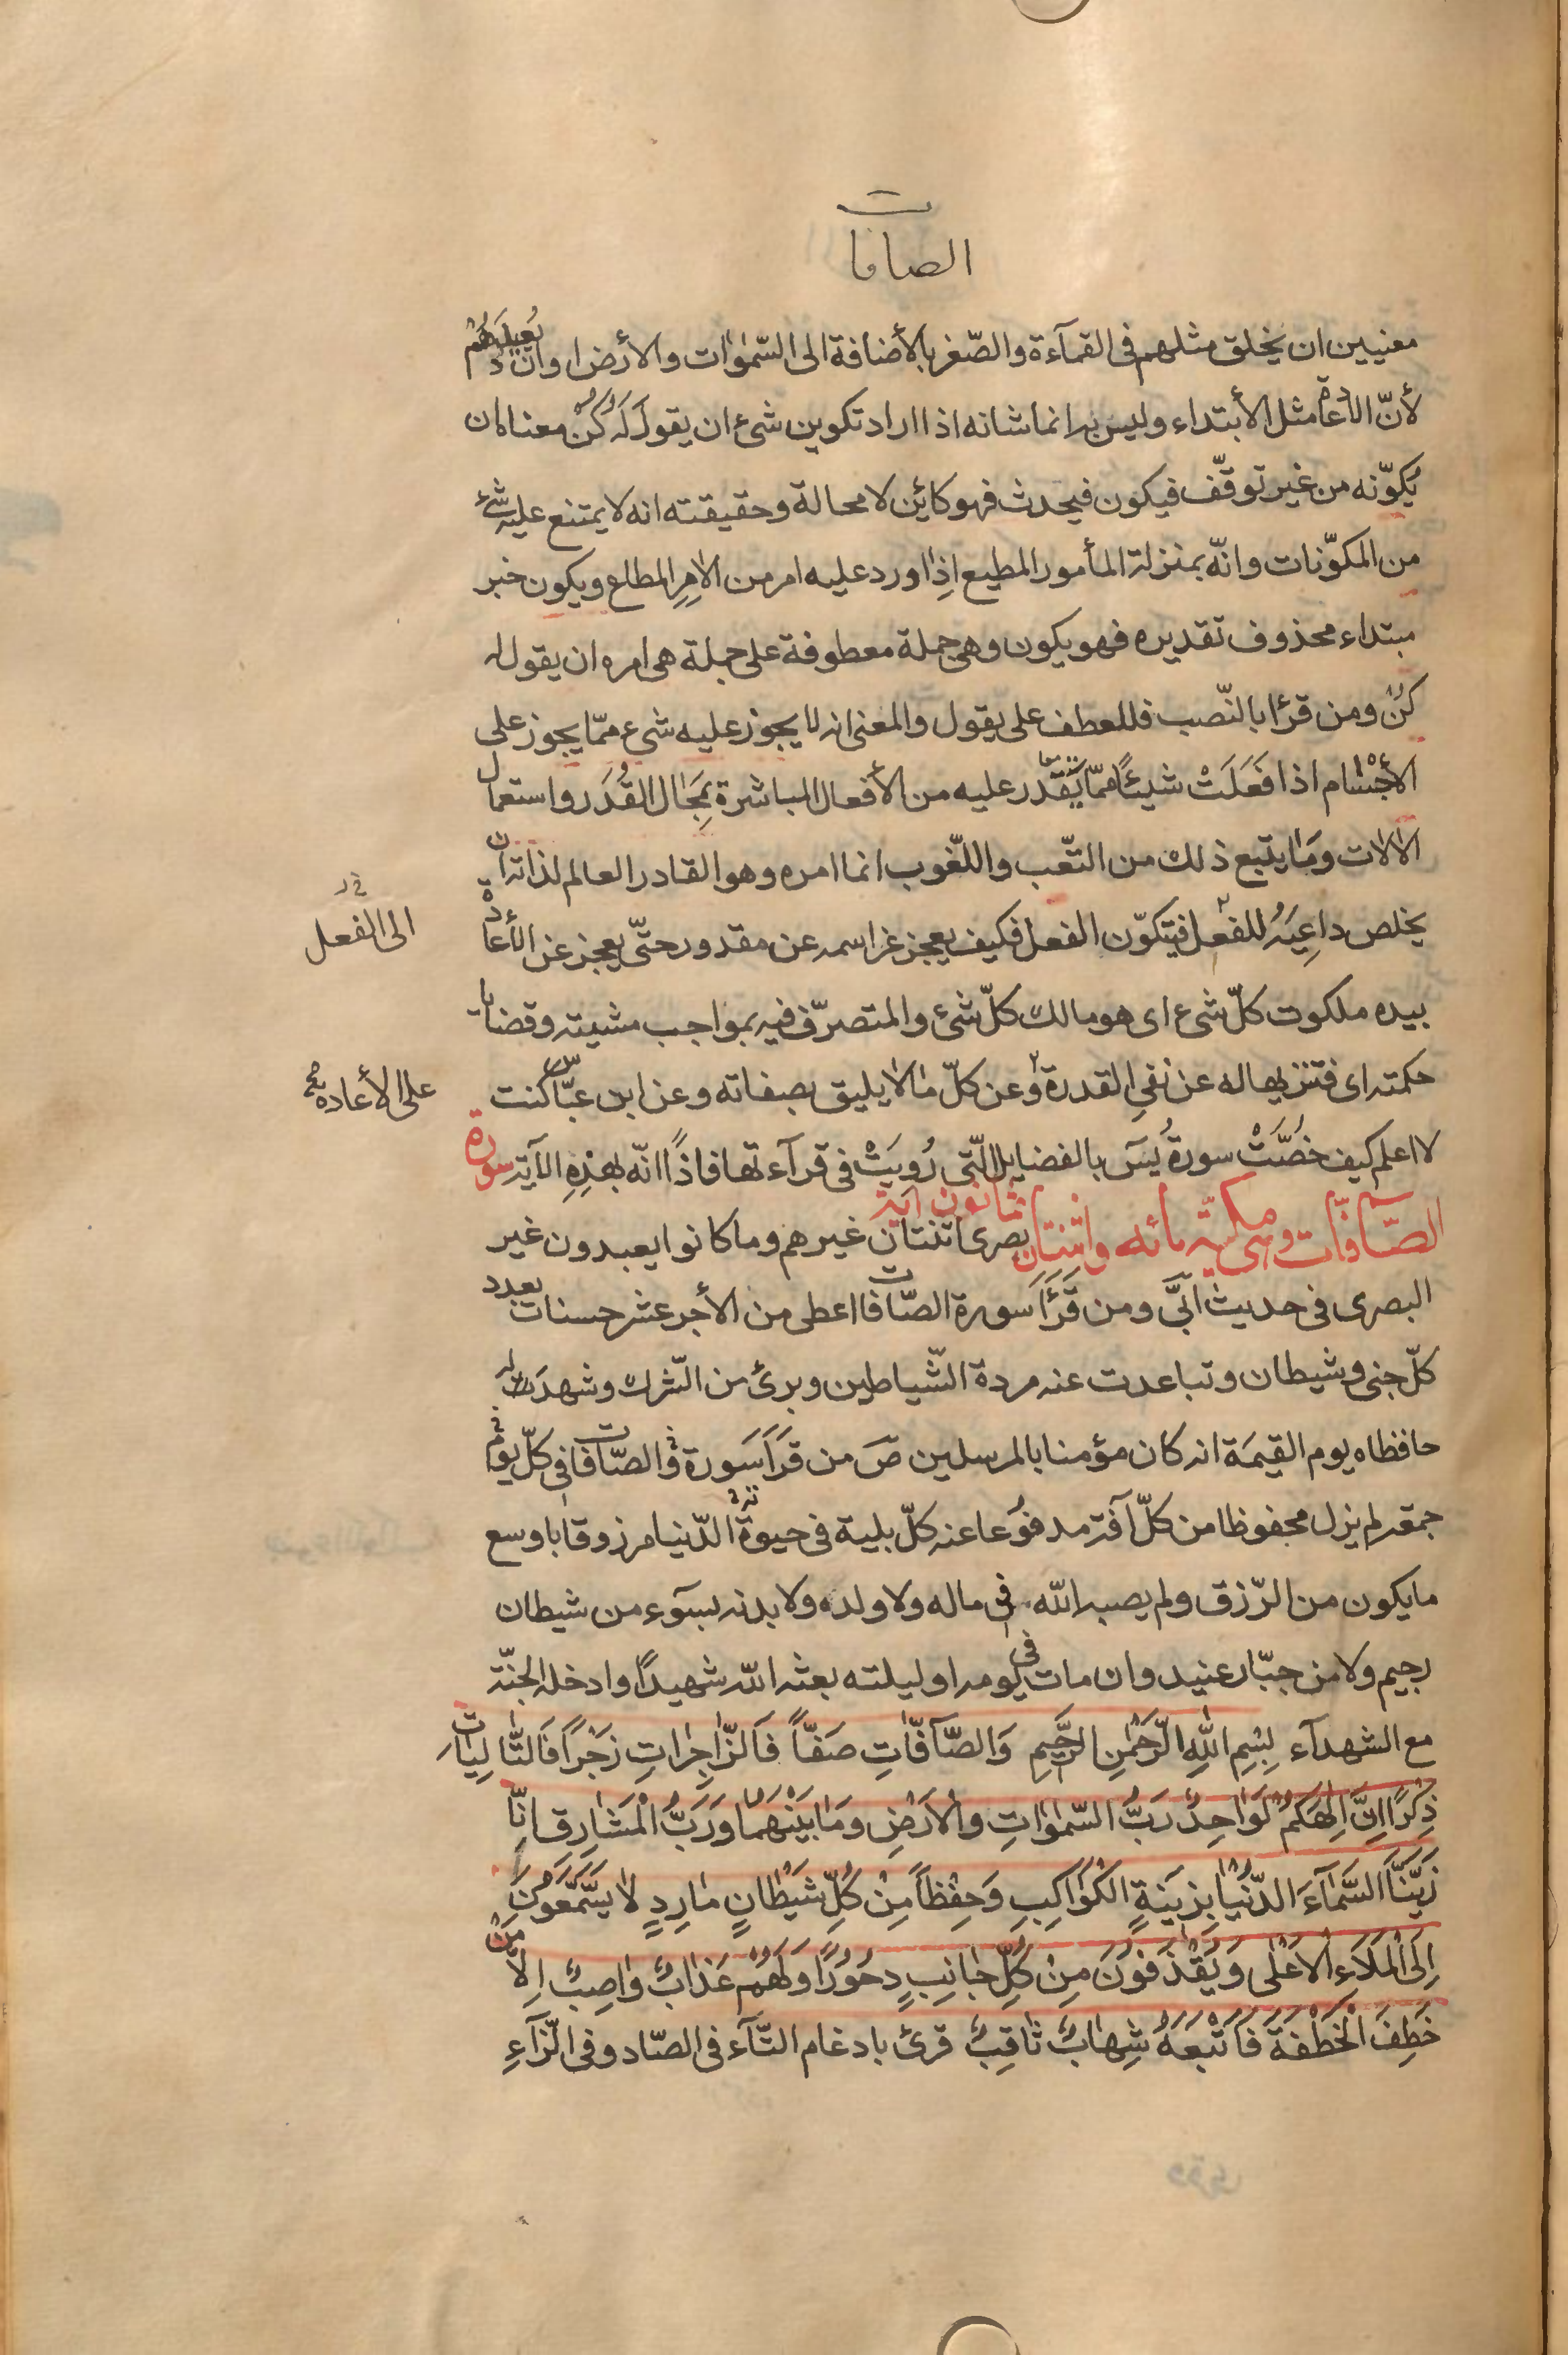 الصافات
معنيين ان يخلق مثلهم فى القمآءة والصّغر بالأضافة الى السّمٰوٰات والأرض او ان يُعيدَهُمْ
لأنّ الأعادة مثل الأبتداء وليس به انما شانه اذا اراد تكوين شىء ان يقول لَهُ كُنْ معناه ان
يكوّنه من غير توقّف فيكون فيحدث فهو كائن لا محالة وحقيقته انه لا يمتنع عليه شئ
من المكوّنات وانّه بمنزلة المأمور المطيع اذِا ورد عليه امر من الاٰمِرِ المطاع ويكون خبر
مبتداء محذوف تقديره فهو يكون وهى جملة معطوفة على جملة هى امره ان يقول له
كن ومن قرئا بالنّصب فللعطف على يقول والمعنى انه لا يجوز عليه شىء ممّا يجوز على
الأجْسٰام اذا فَعَلَتْ شيئًا ممّا يَقْدر عليه من الأفعال المباشرة بِمَجٰال القُدَر واستعمال
الاٰلات ومٰا يتبع ذلك من التّعب واللّغوب انما امره وهو القادر العالم لذاته ان
يخلص داعِيَهُ للفعل فيتكوّن الفعل فكيف يعجز عز اسمه عن مقدور حتّى يعجز عن الأعادة
الى الفعل
بيده ملكوت كلّ شىء اى هو مالك كلّ شئ والمتصرّف فيه بمواجب مشيته وقضايا
حكمته اى فتنزيها له عن نفىِ القدرة وعن كلّ مٰا لا يليق بصفاته وعن ابن عبّاس كنت
على الأعاده صح
لا اعلم كيف خُصَّتْ سورةُ يسَ بالفضايل الّتى رُوِيَتْ فى قرآءتها فاذًا انّه بهٰذِهِ الاٰية سورة
الصّافّات وهى مكيّه مائه واثنتان ثمانون آية بصرى اثنتان غيرهم وما كانوا يعبدون غير
البصرى فى حديث اُبَىَّ ومن قَرَأَ سورة الصّافات اعطى من الأجر عشر حسنات بعدد
كلّ جنى وشيطان وتباعدت عنه مردة الشّياطين وبرئ من الشّرك وشهدَت له
حافظاه يوم القيمَة انه كان مؤمنا بالمرسلين صَ من قَرَأَ سَورة والصّافات فى كلّ يوم
جمعة لم يزل محفوظا من كلّ آفة مدفوُعا عنه كلّ بلية فى حيوة الدّنيا مرزوقا باوسع
ما يكون من الرّزق ولم يصبه الله فى ماله ولا ولده ولا بدنه بسوء من شيطان
رجيم ولا من جبّار عنيد وان مات فى يومه او ليلته بعثه الله شهيدًا وادخله الجنّة
مع الشهدآء بِسْمِ اللهِ الرَّحْمٰنِ الرَّحيمِ وَالصّآفّاتِ صَفّاً فَالزّاجِرٰاتِ زَجْرًا فَالتّالِيٰاتِ
ذِكْرًا اِنَّ اِلٰهَكُمْ لَوٰاحِدٌ رَبُّ السّمٰوٰاتِ وَالاَرْضِ وَمٰا بَيْنَهُمٰا وَرَبُّ الْمَشٰارِقِ اِنّٰا
زَيَّنَّا السَّمٰآءَ الدُّنْيٰا بِزينَةٍ الْكَوٰاكِبِ وَحِفْظاً مِنْ كُلِّ شَيْطٰانٍ مٰارِدٍ لٰا يَسَّمَّعُونَ
اِلَى الْمَلَاءِ الْاَعْلٰى وَيُقْذَفُونَ مِنْ كُلِّ جٰانِبٍ دُحُورًا وَلَهُمْ عَذٰابٌ وٰاصِبٌ اِلّٰا مَنْ
خَطِفَ الْخَطْفَةَ فَاَتْبَعَهُ شِهٰابٌ ثٰاقِبٌ قرئ بادغام التّآء فى الصّاد وفى الزّآءِ